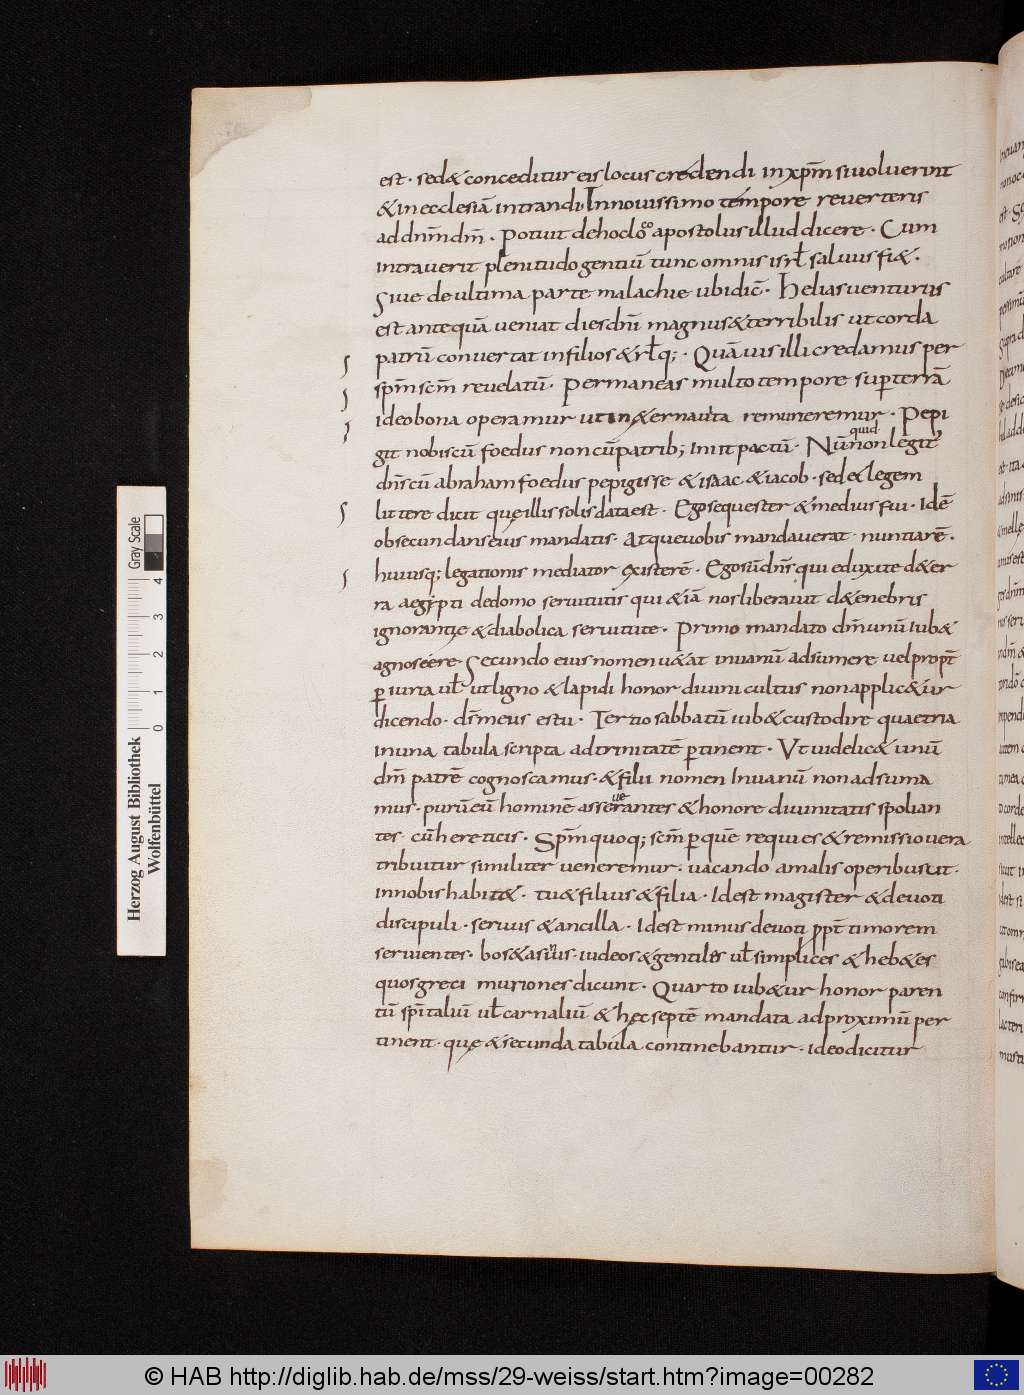 est · sed & conceditur eis locus credendi in xpm̄ si uoluerint
& in ecclesiā intrandi · In nouissimo tempore reuerteris
ad dnm̄ dm̄ . Potuit de hoc loco apostolus illud dicere · Cum
intrauerit plenitudo gentiū tunc omnis isrł saluus fi& ·
Siue de ultima parte malachie ubi dic̄ · Helias uenturus
est antequā ueniat dies dnī magnus & terribilis ut corda
patrū conuertat in filios & rłq; · Quā uis illi credamus per
spm̄ scm̄ reuelatū · Permaneas multo tempore sup terrā
ideo bona operamur ut in &erna uita remuneremur · Pepi
git nobiscū foedus non cū patrib; iniit pactū · Nūquid non legit̄
dns̄ cū abraham foedus pepigisse & isaac & iacob · sed & legem
littere dicit quę illis solis data est · Ego sequester & medius fui · Idē
obsecundans eius mandatis · atque uobis mandauerat nuntiarē ·
huiusq; legationis mediator existerē · Ego sū dns̄ qui eduxi te de ter
ra aegypti de domo seruitutis qui & iā nos liberauit de tenebris
ignorantię & diabolica seruitute · Primo mandato dm̄ unū iub&
agnoscere · Secundo eius nomen uetat in uanū adsumere uel propt̄
piuria uł ut ligno & lapidi honor diuini cultus non applicetur
dicendo · ds̄ meus es tu · Tertio sabbatū iub& custodire quae tria
in una tabula scripta ad trinitatē ptinent · Ut uidelic& unū
dm̄ patrē cognoscamus · & filii nomen in uanū non adsuma
mus · purū eū hominē asseuerantes & honore diuinitatis spolian
tes cū hereticis · Spm̄ quoq; scm̄ p quē requies & remissio uera
tribuitur similiter ueneremur · uacando a malis operibus ut ·
in nobis habit& · tu & filius & filia · Id est magister & deuoti
discipuli · seruus & ancilla · Id est minus deuoti ppt̄ timorem
seruientes · bos & asinus · iudeos & gentiles uł simplices & hebetes
quos greci muriones dicunt · Quarto iubetur honor paren
tū spītaliū uł carnaliū & hęc septē mandata ad proximū per
tinent · quę & secunda tabula continebantur · ideo dicitur
Herzog August Bibliothek
Wolfenbüttel
Gray Scale
0 1 2 3 4
© HAB http://diglib.hab.de/mss/29-weiss/start.htm?image=00282